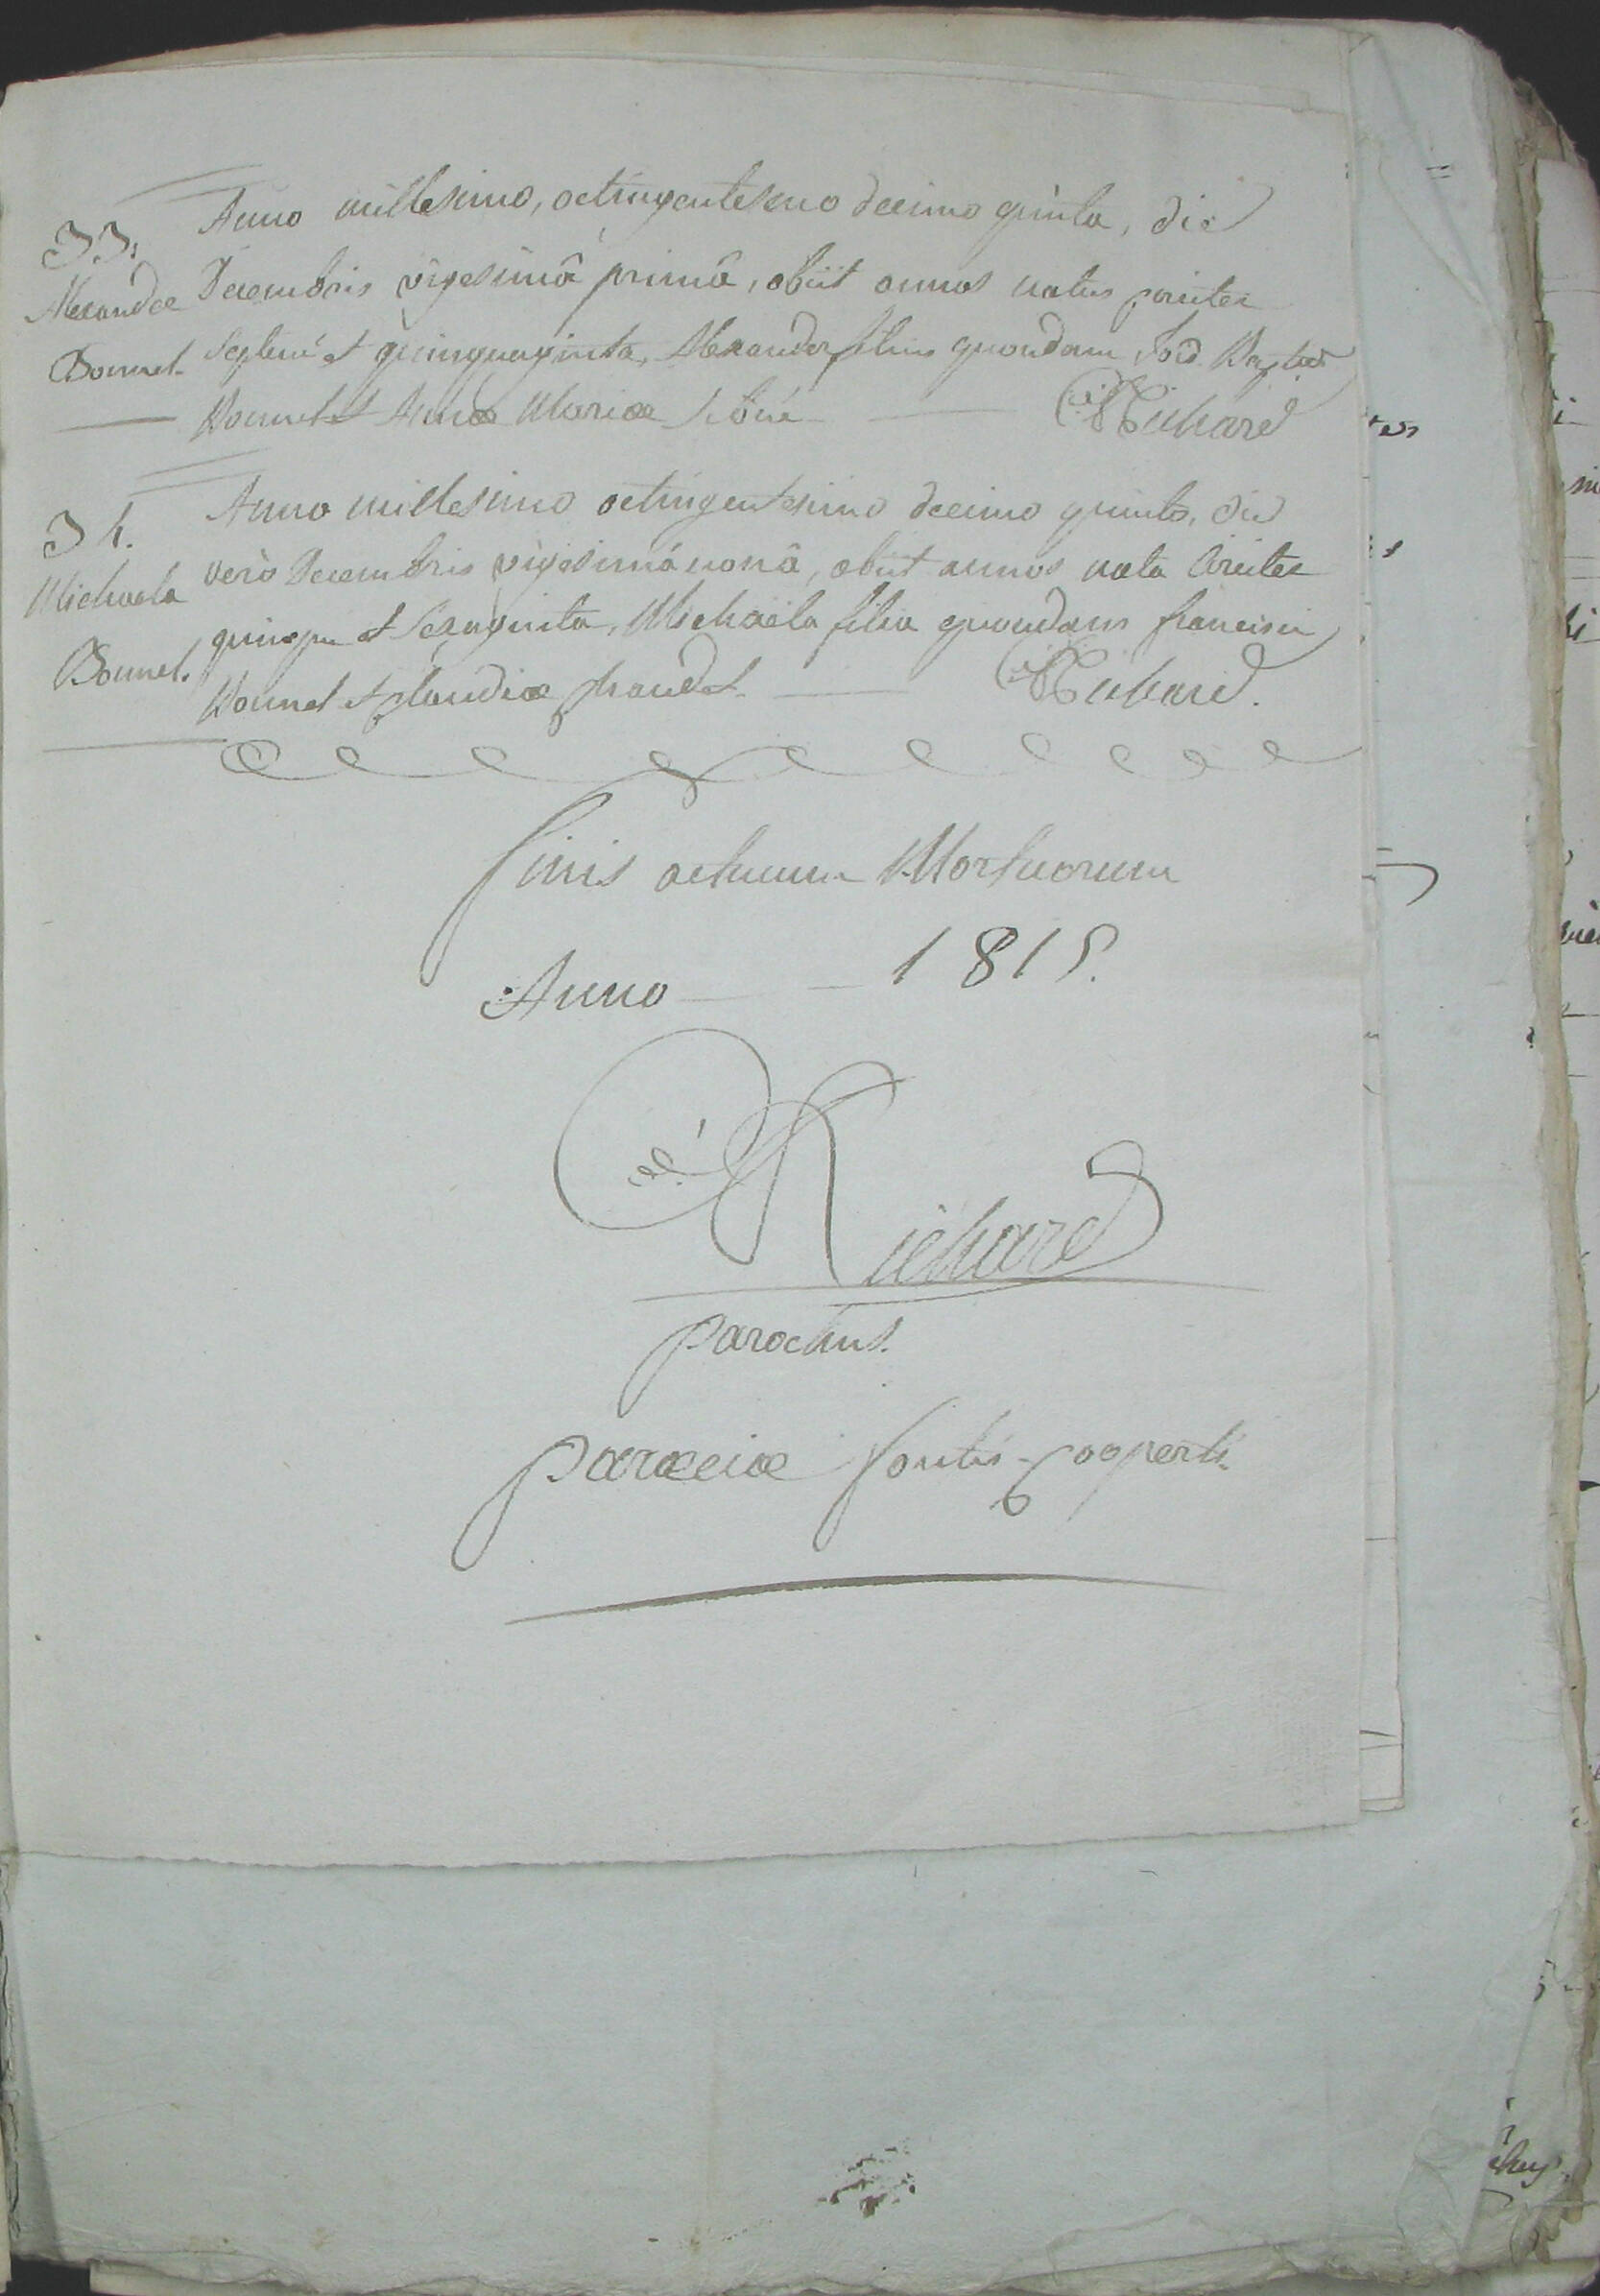 33.
Alexander
Bonnet.
Anno millesimo, octingentesimo decimo quinto, die
Decembris vigesimâ primâ, obiit annos natus circiter
septem et quinquaginta, Alexander filius quondam Joâ. Baptæ
Bonnet et Annæ Mariæ
Richard
34.
Michaela
Bonnet.
Anno millesimo octingentesimo decimo quinto, die
verò Decembris vigesimâ nonâ, obiit annos nata circiter
quinque et sexaginta, Michaëla filia quondam francisci
Bonnet et Claudiæ
Richard.
finis actuum Mortuorum
Anno 1815.
Richard
parochus.
parœciæ fontis-Cooperti